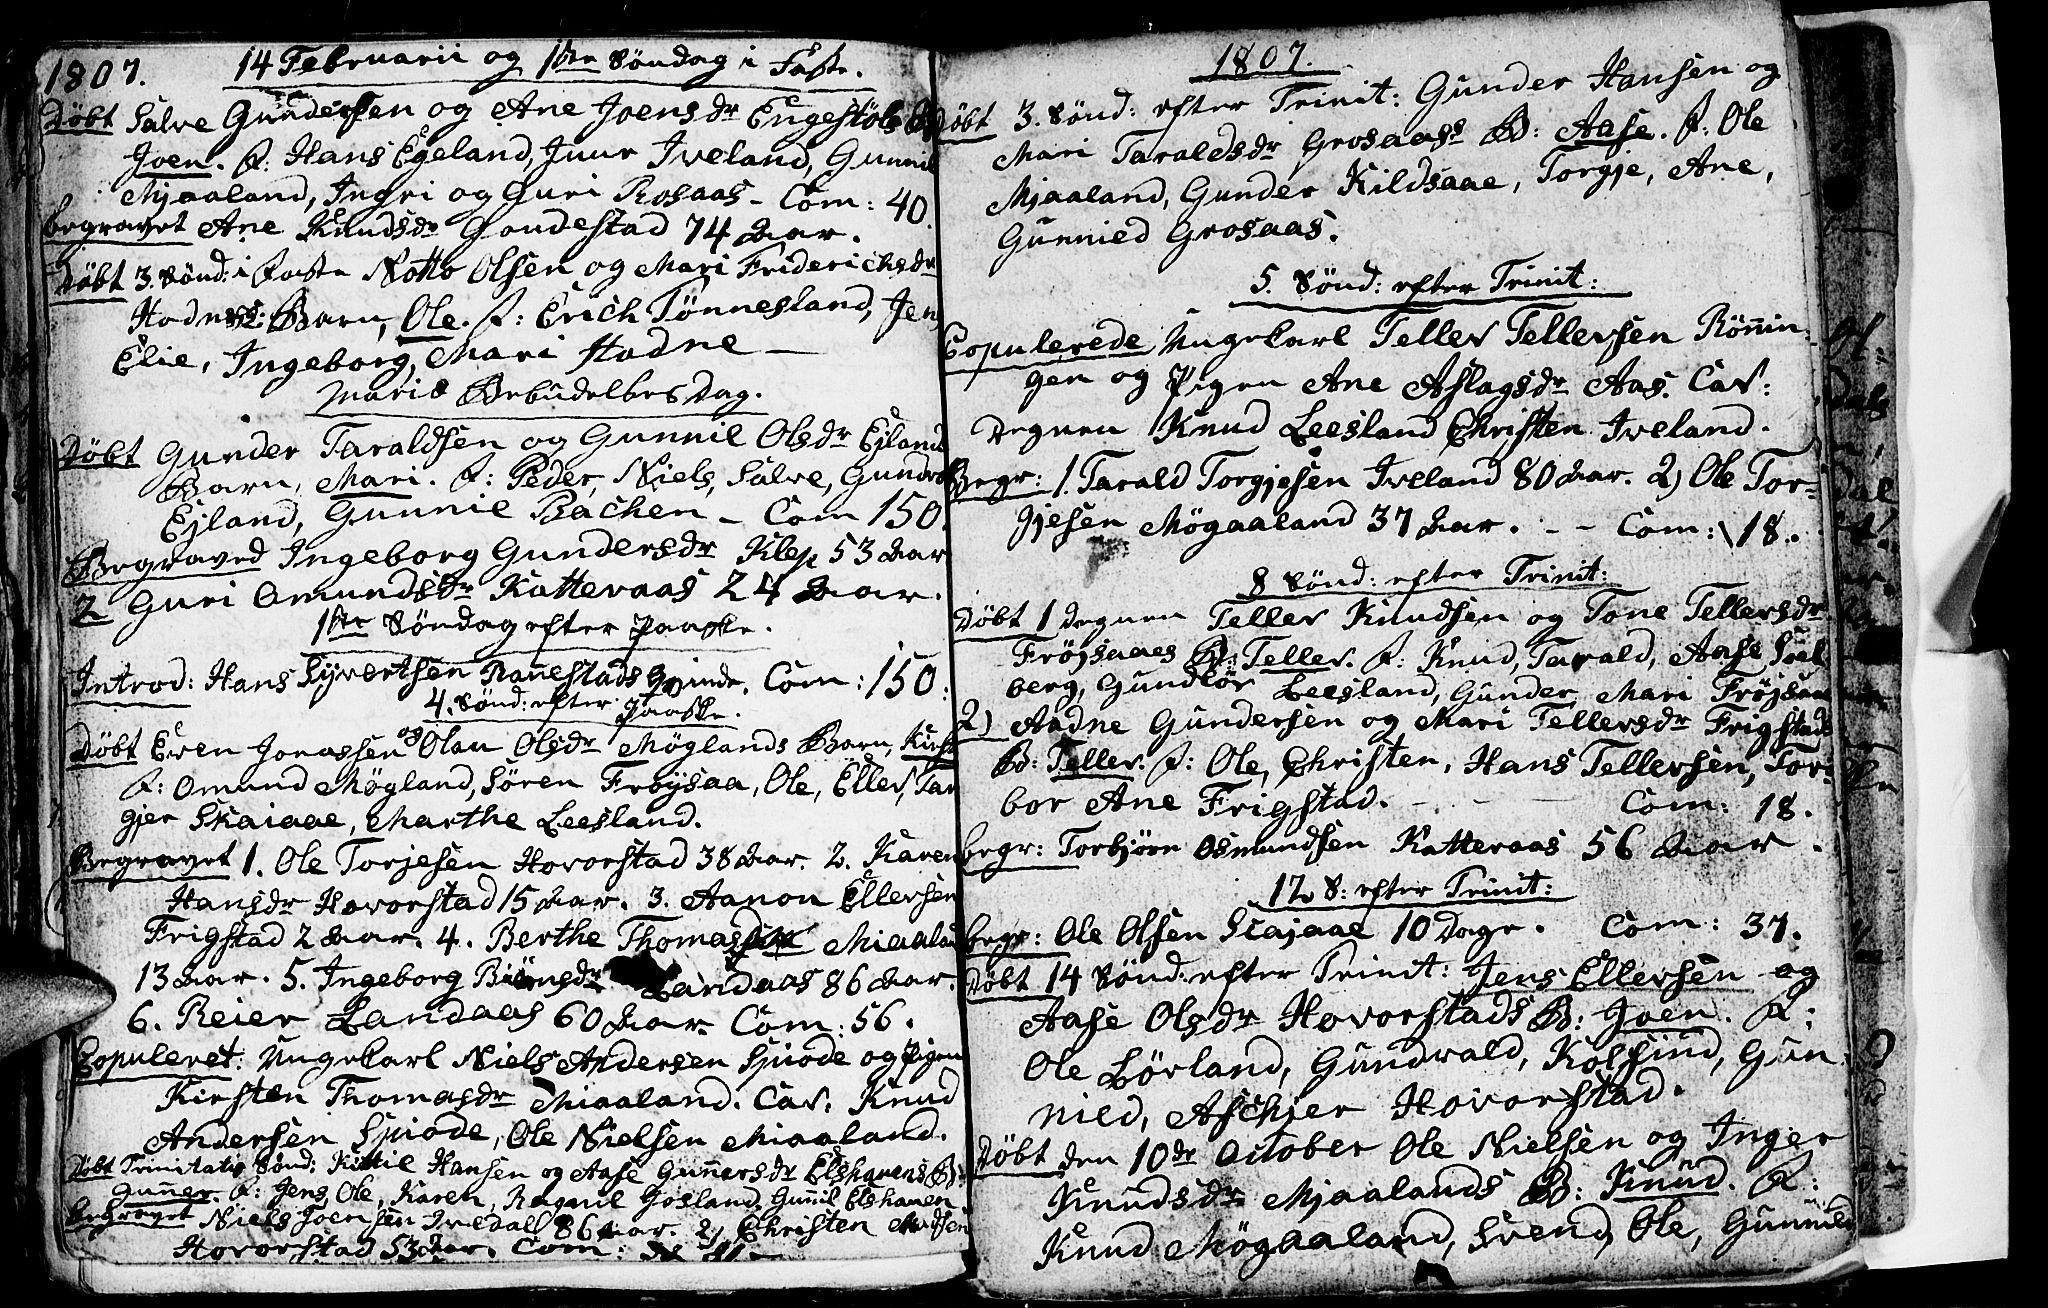 1807. 14 Februarii og 1ste Söndag i Faste.
Döbt Salve Gundersen og Ane Joensdr Engestöls B:
Joen. F: Hans Egeland, Juur Iveland, Gunnil
Mjaaland, Ingri og Guri Rosaas – Com: 40.
Begravet Ane Knudsdr Sondestad 74 Aar.
Döbt 3. Sönd: i Faste Notto Olsen og Mari Friderichsdr
Hodnes Barn, Ole. F: Erich Tönnesland, Jens
Elie, Ingeborg, Mari Hodne –
Mariæ Bebudelses Dag.
Döbt Gunder Taraldsen og Gunnil Olsdr Ejland
Barn, Mari. F: Peder, Niels, Salve, Gundroe
Ejland, Gunnil Bachen – Com 150.
Begraved Ingeborg Gundersdr Klep 53 Aar
2 Guri Omundsdr Katteraas 24 Aar.
1ste Söndag efter Paaske.
Introd: Hans Syvertsen Ranestads Qvinde. Com: 150:
4. Sönd: efter Paaske.
Döbt Even Jonassen og Olau Olsdr Möglands Barn, Kirst
F: Omund Mögland, Sören Fröysaa, Ole, Eller, Tar
gjer Skaiaae, Marthe Leesland.
Begravet 1. Ole Torjesen Hovorstad 38 Aar. 2. Karen
Hansdr Hovorstad 15 Aar. 3. Aanon Ellersen
Frigstad 2 Aar. 4. Berthe Thomasdr Miaaland
13 Aar. 5. Ingeborg Biörnsdr Landaas 86 Aar.
6. Reier Landaas 60 Aar. Com: 56.
Copuleret: Ungekarl Niels Andersen Spiode og Pigen
Kirsten Thomasdr Miaaland. Cav. Knud
Andersen Spiode, Ole Nielsen Miaaland.
Döbt Trinitatis Sönd: Kittil Hansen og Aase Gunnersdr Elshauens B:
Gunner. F: Jens, Ole, Karen, Ragnil Josland, Gunnil Elshauen.
Begravet Niels Joensen Ivedall 86 Aar. 2) Christen Madsen
Hovorstad 53 Aar. Com:
1807.
Döbt 3. Sönd: efter Trinit: Gunder Hansen og
Mari Taraldsdr Grosaass B: Aase. F: Ole
Mjaaland, Gunder Kildsaae, Torgje, Ane,
Gunnied Grosaas.
5. Sönd: efter Trinit:
Copulerede Ungekarl Teller Tellersen Rönnin-
gen og Pigen Ane Aslagsdr Aas. Cav:
Degnen Knud Leesland Christen Iveland.
Begr: 1. Tarald Torgjesen Iveland 80 Aar. 2) Ole Tor-
gjesen Mögaaland 37 Aar. – – Com: 18.
8 Sönd: efter Trinit:
Döbt 1 Degnen Teller Knudsen og Tone Tellersdr
Fröjsaaes B: Teller. F: Knud, Tarald, Aase Soel
berg, Gundlör Leesland, Gunder, Mari Fröjsaae
2) Aadne Gundersen og Mari Tellersdr Frigstads
B: Teller. F: Ole, Christen, Hans Tellersen, Tor-
bor Ane Frigstad. – – – Com: 18.
Begr: Torbjörn Osmundsen Katteraas 56 Aar.
12 S: efter Trinit:
Begr: Ole Olsen Scajaae 10 Dage. Com: 37.
Döbt 14 Sönd: efter Trinit: Jens Ellersen og
Aase Olsdr Hovorstads B: Joen. F:
Ole Lörland, Gundvald, Kolsind, Gun-
nild, Aschjer Hovorstad.
Döbt den 10de October Ole Nielsen og Inger
Knudsdr Mjaalands B: Knud. F:
Knud Mögaaland, Svend, Ole, Gunnild